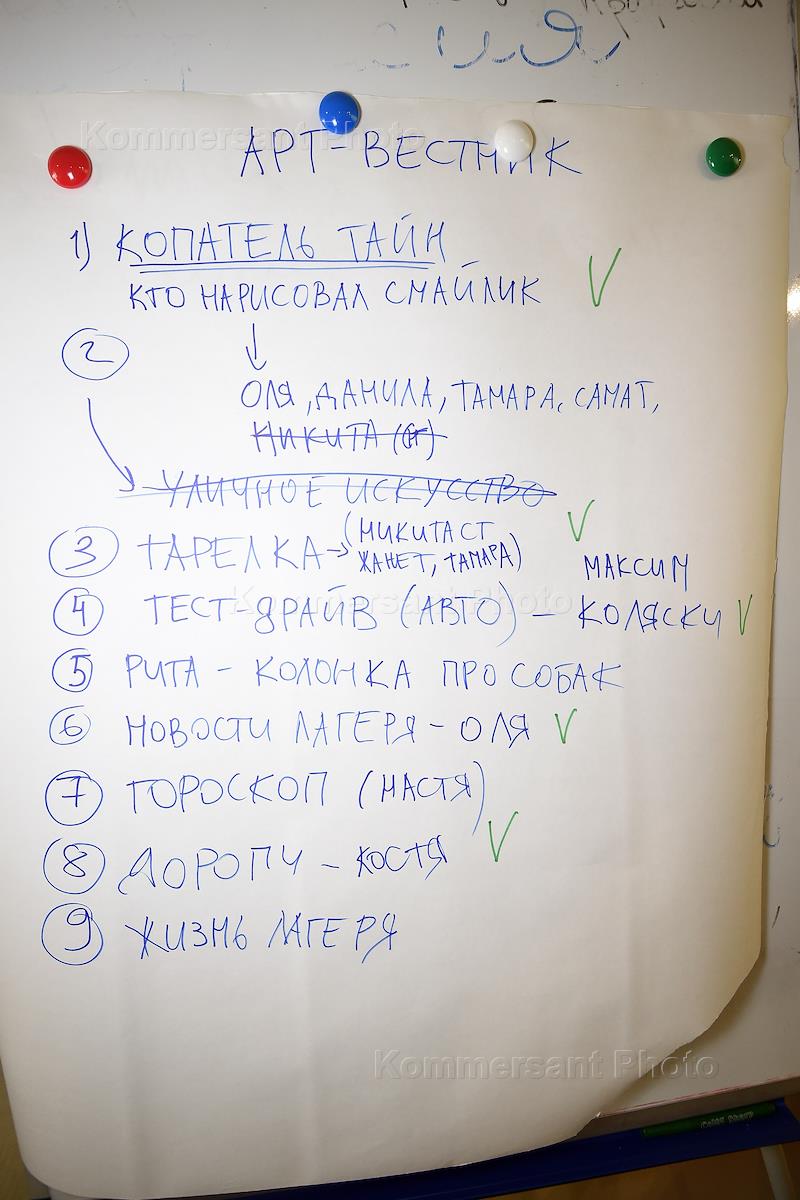 АРТ-ВЕСТНИК
1) КОПАТЕЛЬ ТАЙН
КТО НАРИСОВАЛ СМАЙЛИК V
2
ОЛЯ, ДАНИЛА, ТАМАРА, САМАТ,
НИКИТА (СТ)
УЛИЧНОЕ ИСКУССТВО
3 ТАРЕЛКА → (НИКИТА СТ V
ЖАНЕТ, ТАМАРА)
МАКСИМ
4 ТЕСТ-ДРАЙВ (АВТО) - КОЛЯСКИ V
5 РИТА - КОЛОНКА ПРО СОБАК
6 НОВОСТИ ЛАГЕРЯ - ОЛЯ V
7 ГОРОСКОП (НАСТЯ)
8 - КОСТЯ V
9 ЖИЗНЬ ЛАГЕРЯ
Kommersant Photo
Kommersant Photo
Kommersant Photo